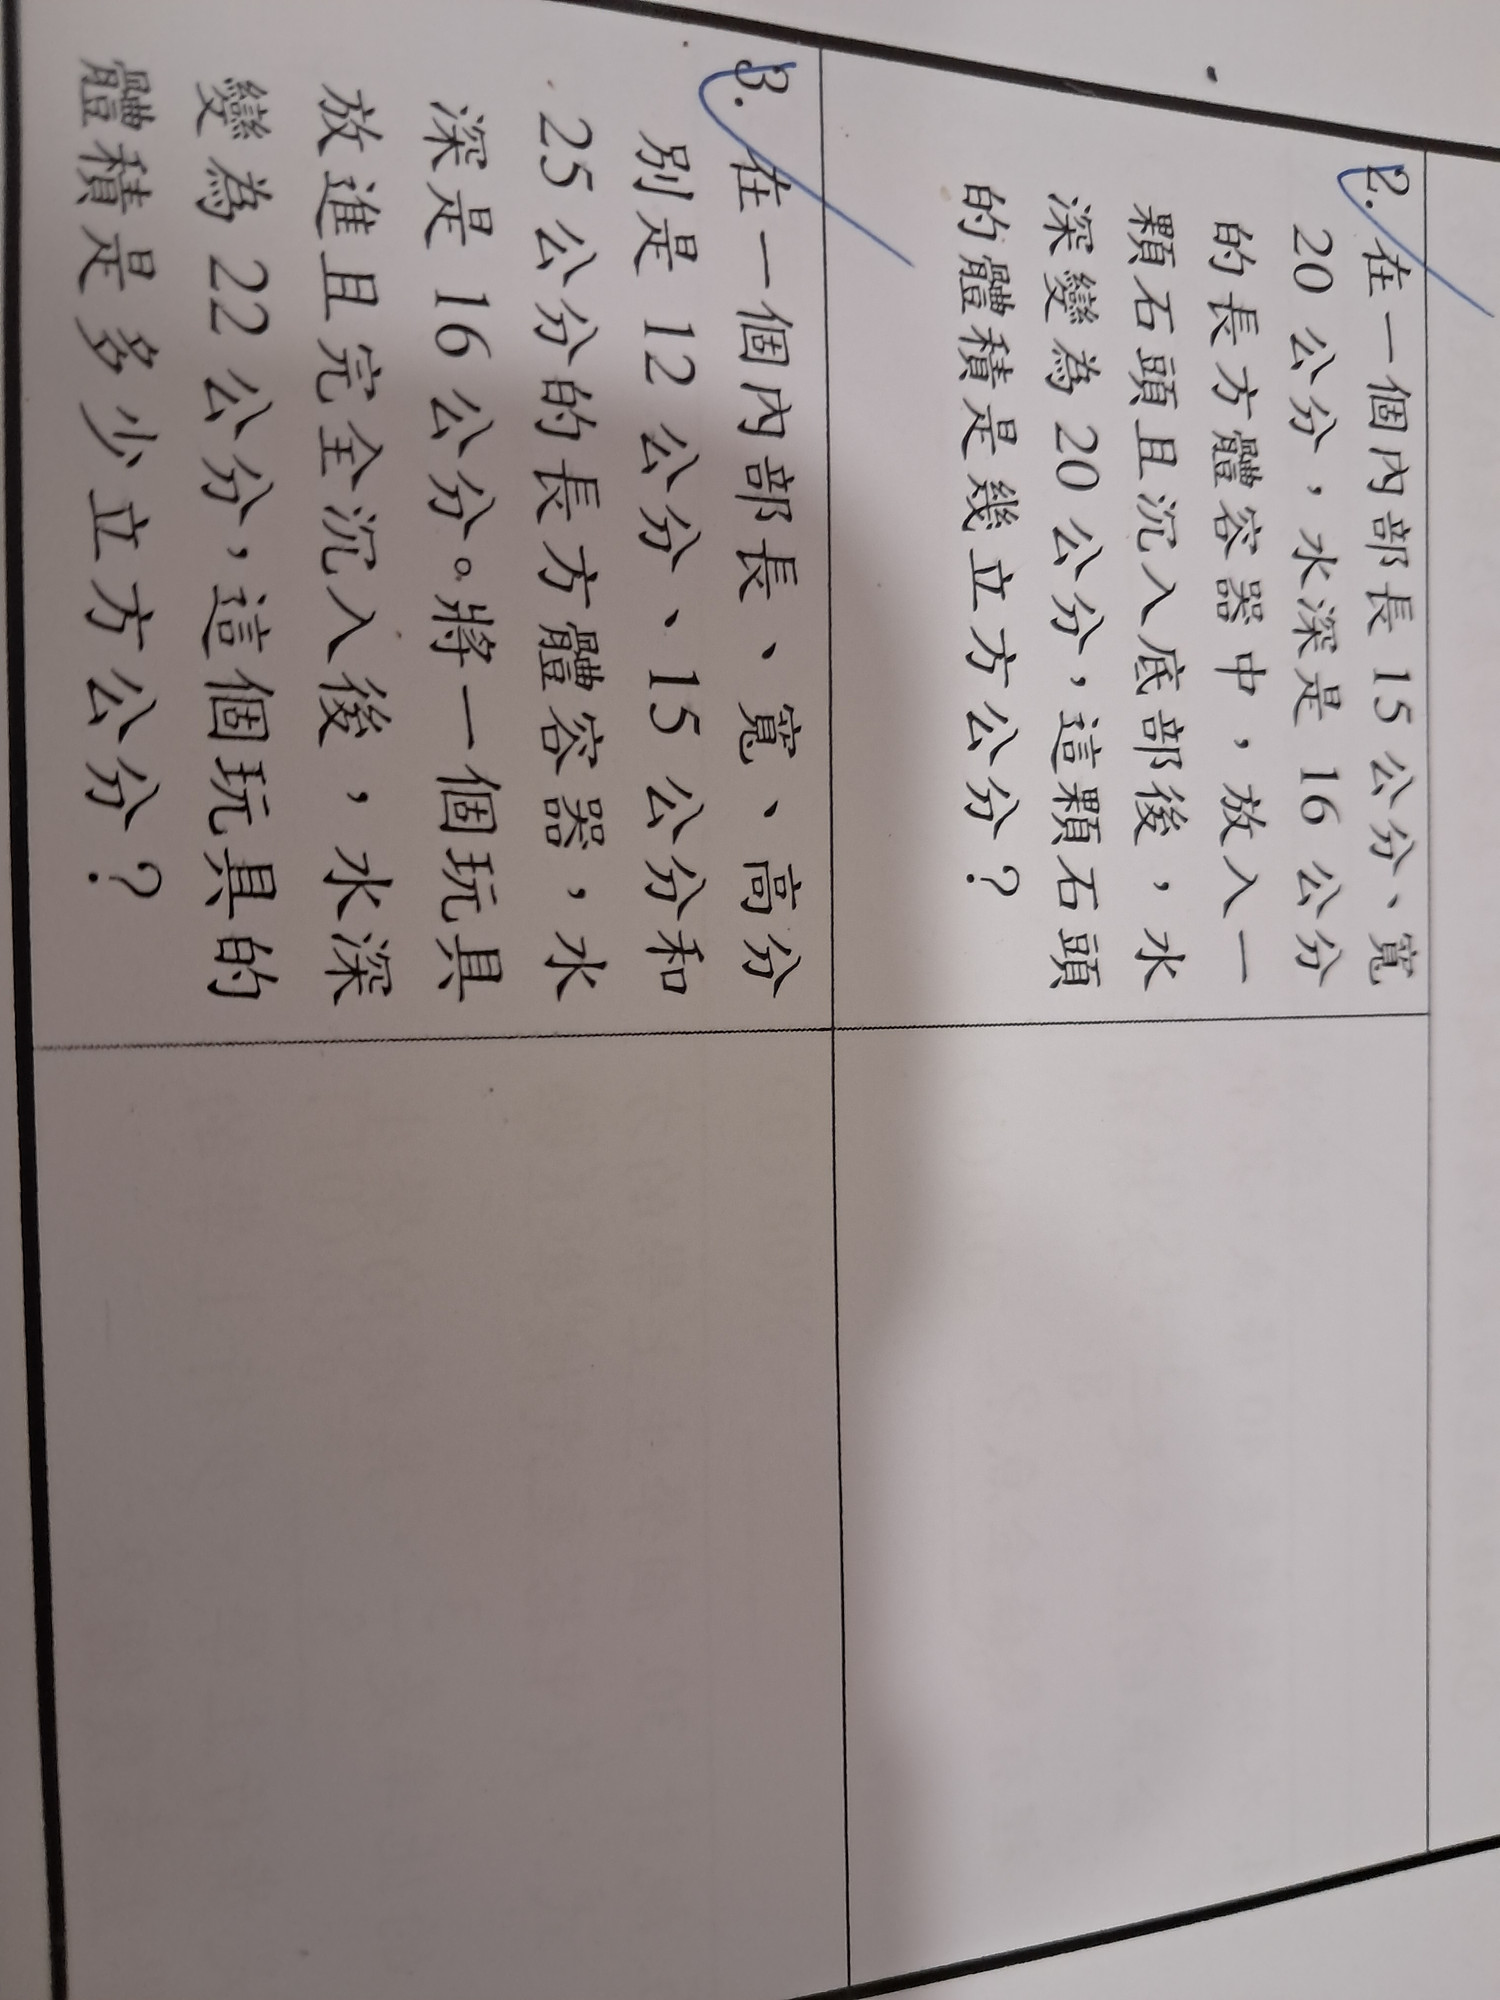 2. 在一個內部長 15 公分、寬
20 公分，水深是 16 公分
的長方體容器中，放入一
顆石頭且沉入底部後，水
深變為 20 公分，這顆石頭
的體積是幾立方公分？
3. 在一個內部長、寬、高分
別是 12 公分、15 公分和
25 公分的長方體容器，水
深是 16 公分。將一個玩具
放進且完全沉入後，水深
變為 22 公分，這個玩具的
體積是多少立方公分？